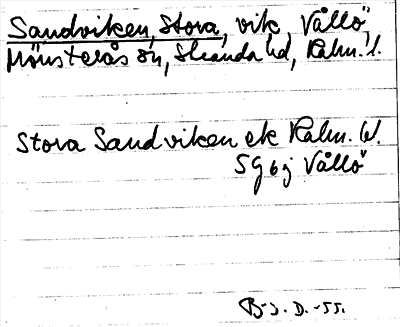 Sandviken, Stora, vik, Vållö,
Mönsterås sn, Stranda hd, Kalm. l.
Stora Sandviken ek Kalm. W.
5G6j Vållö
B-s. D. -55.